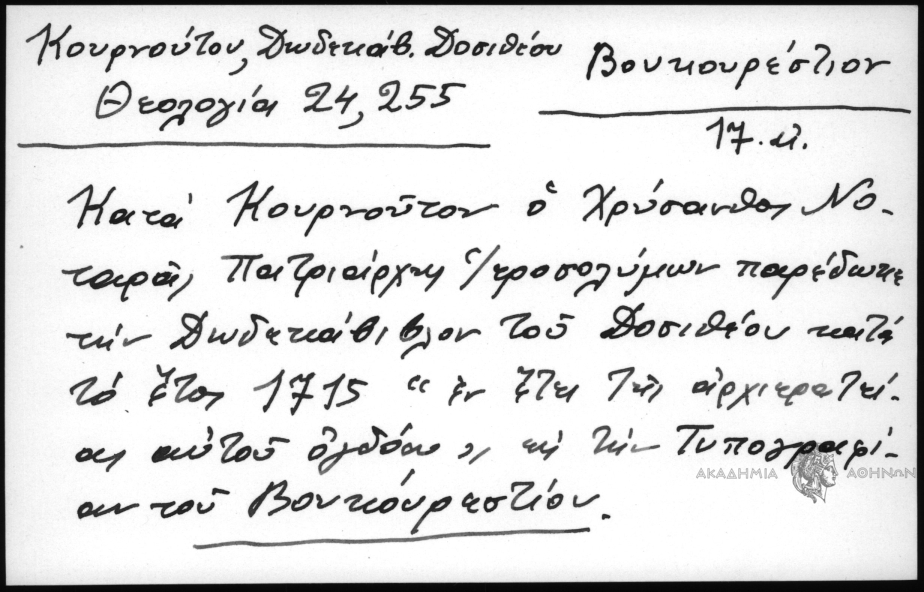 Κουρνούτου, Δωδεκάβ. Δοσιθέου
Θεολογία 24, 255
Βουκουρέστιον
17. μ.
Κατά Κουρνοῦτον ὁ Χρύσανθος Νο-
ταρᾶς Πατριάρχης Ἱεροσολύμων παρέδωκε
τήν Δωδεκάβιβλον τοῦ Δοσιθέου κατά
τό ἔτος 1715 "ἐν ἔτει τῆς ἀρχιερατεί-
ας αὐτοῦ ὀγδόῳ", εἰς τήν Τυπογραφί-
αν τοῦ Βουκουρεστίου.
ΑΚΑΔΗΜΙΑ ΑΘΗΝΩΝ